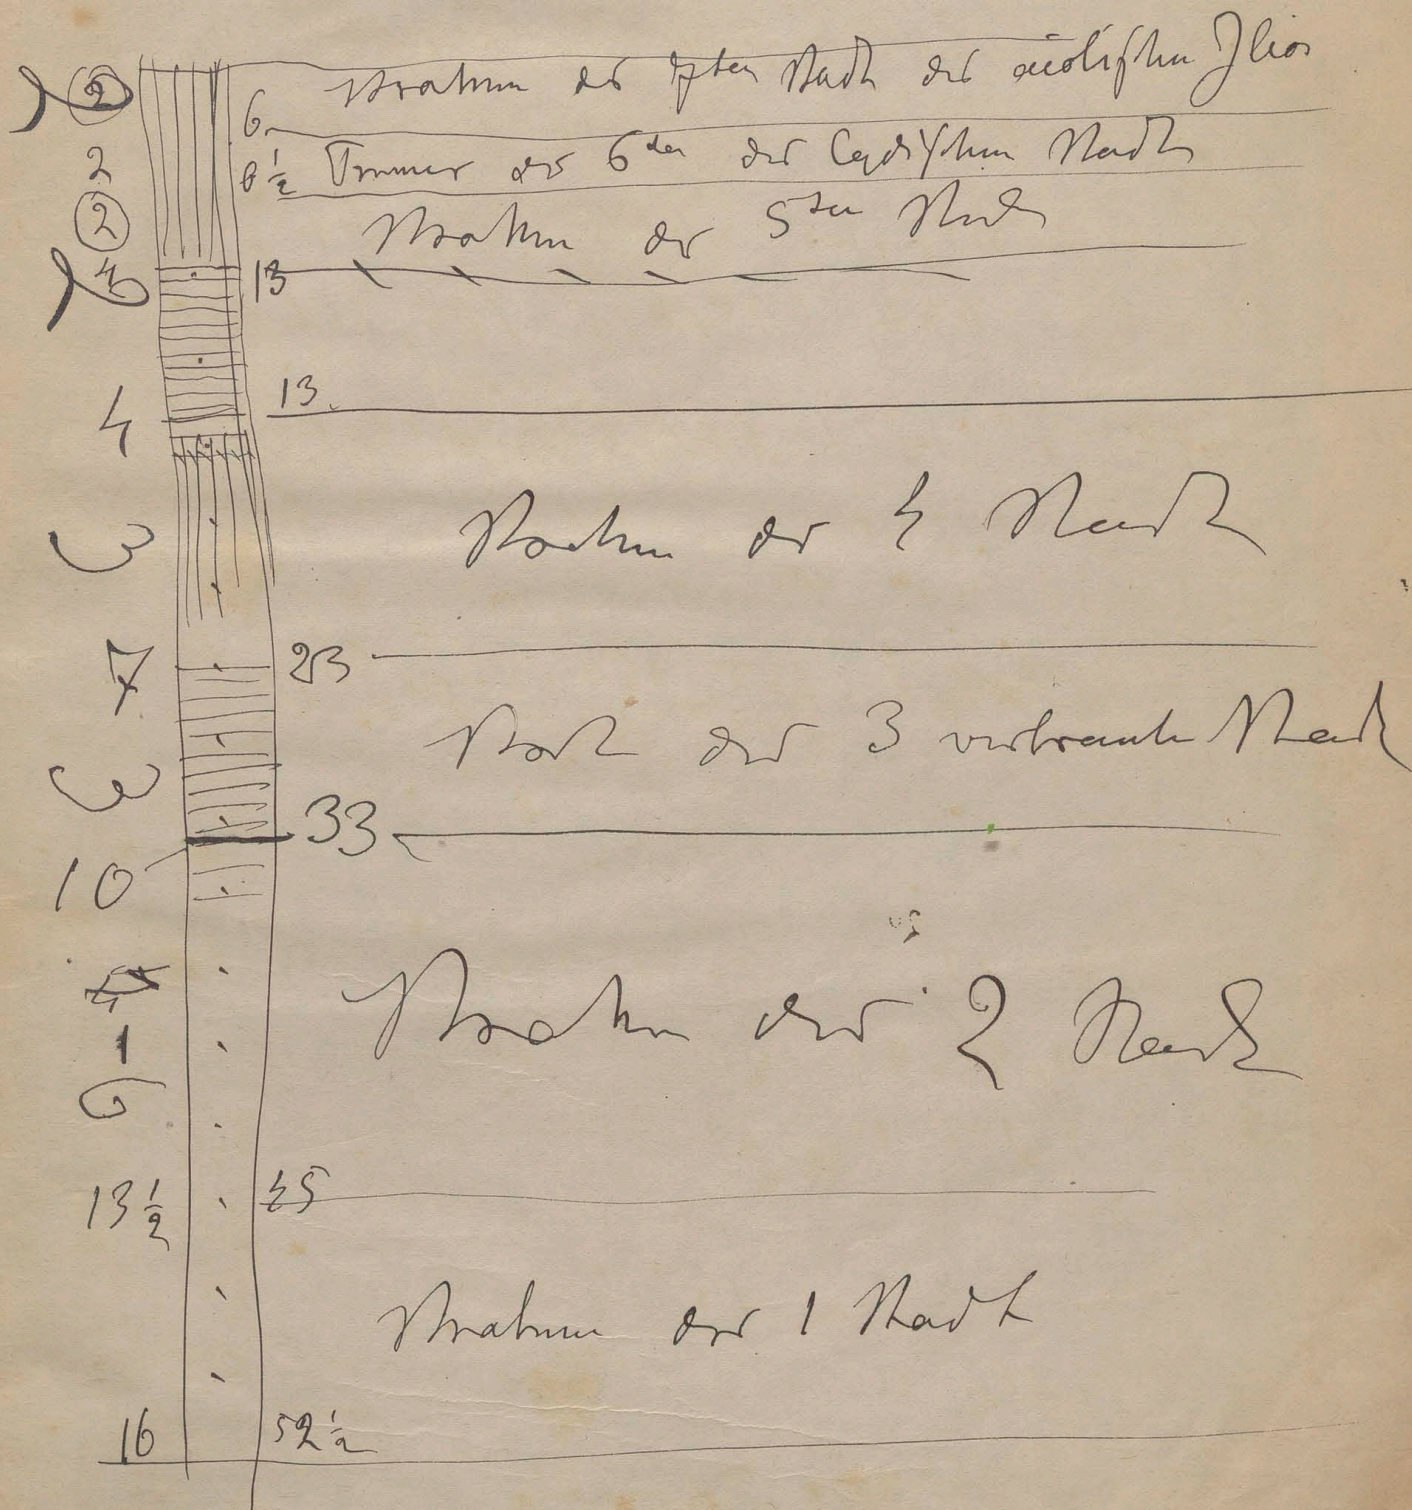 2
6. Stratum der 7ten Stadt des äolischen Ilios
2
6 1/2 Trümmer der 6ten der lydischen Stadt
2
Stratum der 5ten Stadt
4 13
4 13.
Stratum der 4 Stadt
3
7 23
Strat der 3 verbrannte Stadt
3
33
10
Stratum der 2 Stadt
1
6
13 1/2 45
Stratum der 1 Stadt
16 52 1/2